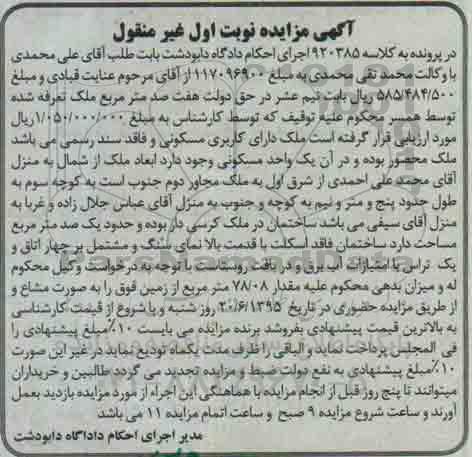 آگهی مزایده نوبت اول غیر منقول
در پرونده به کلاسه ۹۲۰۳۸۵ اجرای احکام دادگاه دابودشت بابت طلب آقای علی محمدی
با وکالت محمد تقی محمدی به مبلغ ۱۱۷۰۹۶۹۰۰ از آقای مرحوم عنایت قبادی و مبلغ
۵۸۵/۴۸۴/۵۰۰ ریال بابت نیم عشر در حق دولت هفت صد متر مربع ملک تعرفه شده
توسط همسر محکوم علیه توقیف که توسط کارشناس به مبلغ ۱/۰۵۰/۰۰۰/۰۰۰ ریال
مورد ارزیابی قرار گرفته است ملک دارای کاربری مسکونی و فاقد سند رسمی می باشد
ملک محصور بوده و در آن یک واحد مسکونی وجود دارد ابعاد ملک از شمال به منزل
آقای محمد علی احمدی از شرق اول به ملک مجاور دوم جنوب است به کوچه سوم به
طول حدود پنج و متر و نیم به کوچه و جنوب به منزل آقای عباس جلال زاده و غربا به
منزل آقای سیفی می باشد ساختمان در ملک کرسی دار بوده و حدود یک صد متر مربع
مساحت دارد ساختمان فاقد اسکلت با قدمت بالا نمای سنگ و مشتمل بر چهار اتاق و
یک تراس با امتیازات آب برق و در بافت روستاست با توجه به درخواست وکیل محکوم
له و میزان بدهی محکوم علیه مقدار ۷۸/۰۸ متر مربع از زمین فوق را به صورت مشاع و
از طریق مزایده حضوری در تاریخ ۲۰/۶/۱۳۹۵ روز شنبه و با شروع از قیمت کارشناسی
به بالاترین قیمت پیشنهادی بفروشد برنده مزایده می بایست ۱۰٪ مبلغ پیشنهادی را
فی المجلس پرداخت نماید و الباقی را ظرف مدت یکماه تودیع نماید در غیر این صورت
۱۰٪ مبلغ پیشنهادی به نفع دولت ضبط و مزایده تجدید می گردد طالبین و خریداران
میتوانند تا پنج روز قبل از انجام مزایده با هماهنگی این اجراء از مورد مزایده بازدید بعمل
آورند و ساعت شروع مزایده ۹ صبح و ساعت اتمام مزایده ۱۱ می باشد
مدیر اجرای احکام داداگاه دابودشت